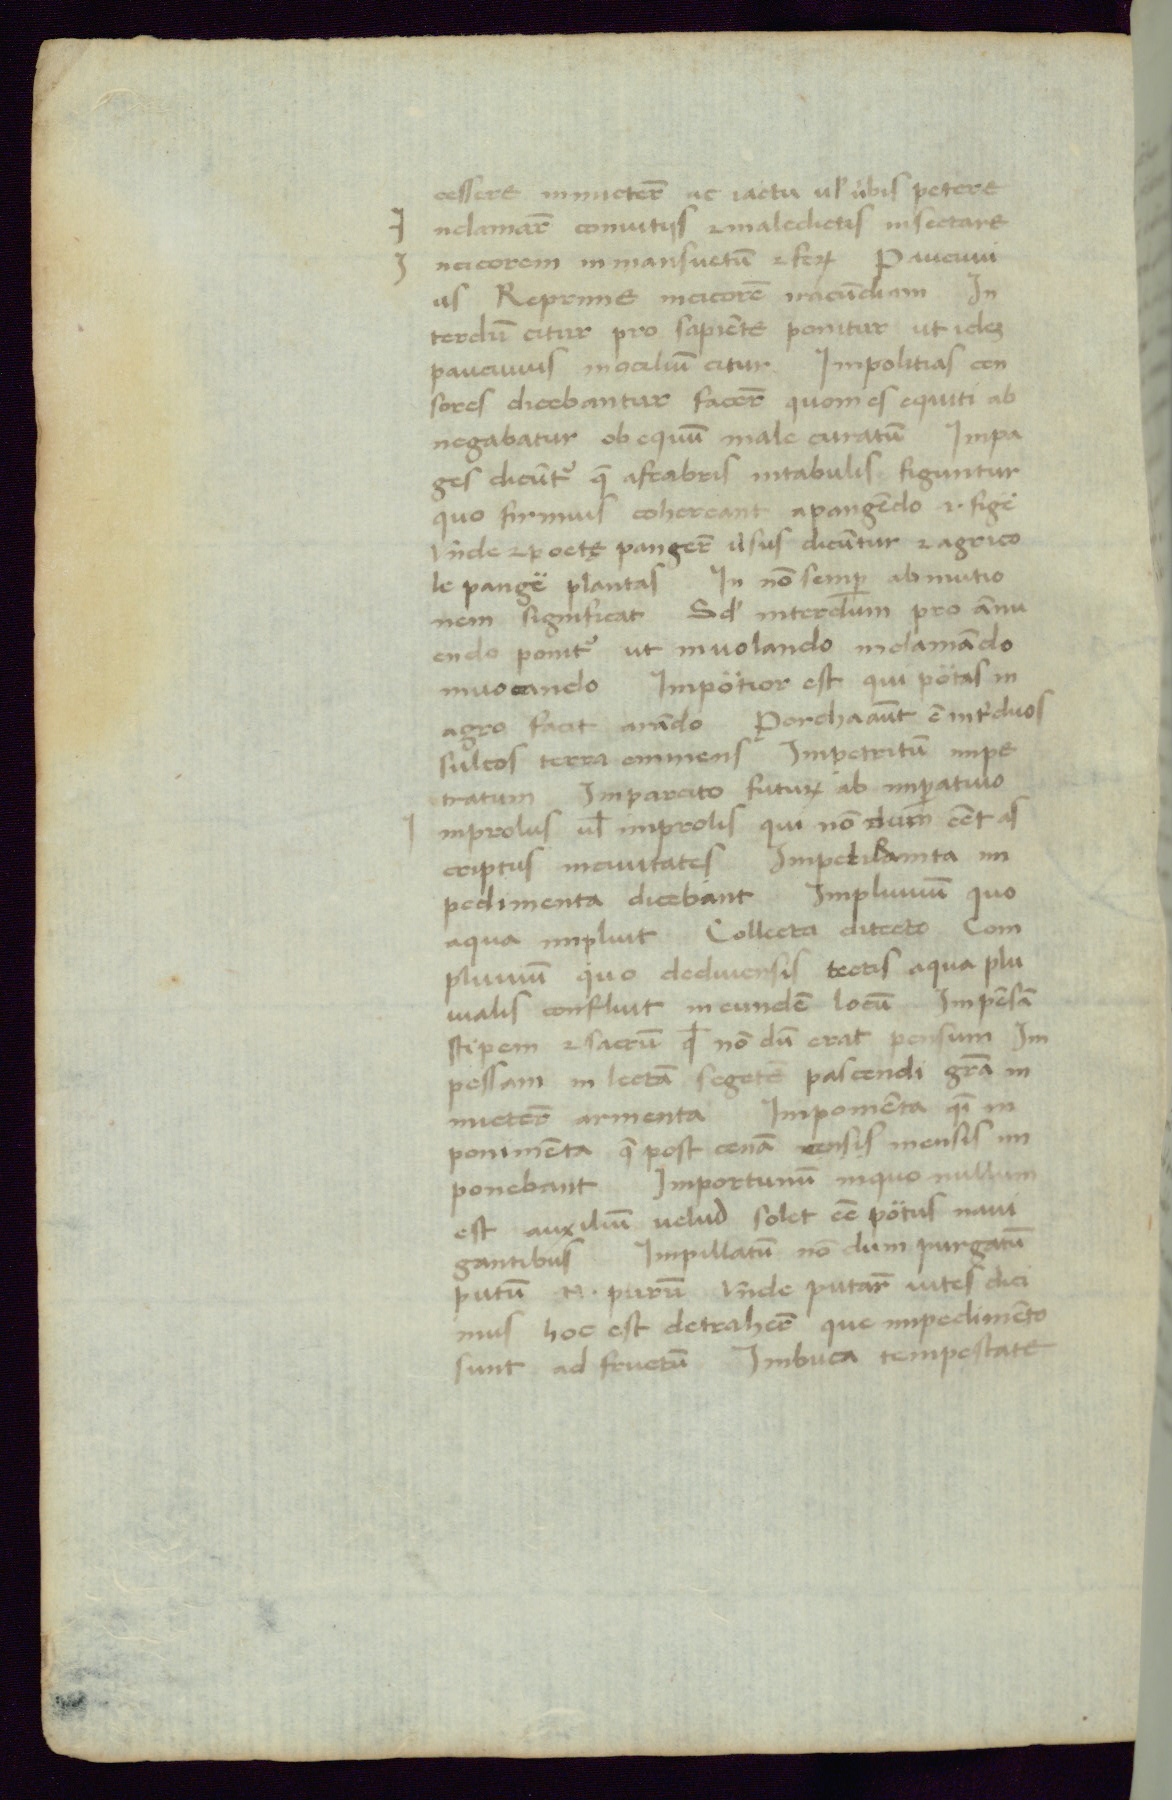 cessere inmicter̄ ac iactu ul̄ ūbis petere
I nclamar̄ conuitijs &maledictis insectare
I ncicorem inmansuetū &feꝝ Pacuui
us Reprime incicorē iracūdiam In
terdū citur pro sapiēte ponitur ut idez
pacuuius inociliū citur Impolitias cen
sores dicebantur facer̄ quom es equiti ab
negabatur ob equū male curatū Impa
ges dicūtᷣ q̄ afrabris intabulis figuntur
quo firmius cohereant apangēdo .i. figē
Vn̄de &poetę panger̄ ūsus dicūtur &agrico
le pangē plantas In nō semꝑ abnutio
nem significat Sd̄ interdum pro ānu
endo ponitᷣ ut inuolando inclamādo
inuocando Impōtior est qui pōtas in
agro facit arādo Porcha aūt ē int̄ duos
sulcos terra eminens Impetritū impe
tratum Imparcito futuꝝ ab imꝑatiuo
I mprolus ul̄ improlis qui nō dum eēt as
criptus inciuitates Impelimīta im
pedimenta dicebant Impluuiū quo
aqua impluit Collecta ditecto Com
pluuiū quo dediuersis tectis aqua plu
uialis confluit ineundē locū Impēsā
stipem &sacrū q̄ nō dū erat pensum Im
pessam in lectā segetē pascendi grā in
mictēr armenta Impomēta q̄i in
ponimēta q̄ post cenā mensis im
ponebant Importunū inquo nullum
est auxiliū velud solet eē pōtus naui
gantibus Impillatū nō dum purgatū
putū .n. purū Vn̄de putar̄ uites dici
mus hoc est detraher̄ que impedimēto
sunt ad fructū Imbuca tempestate